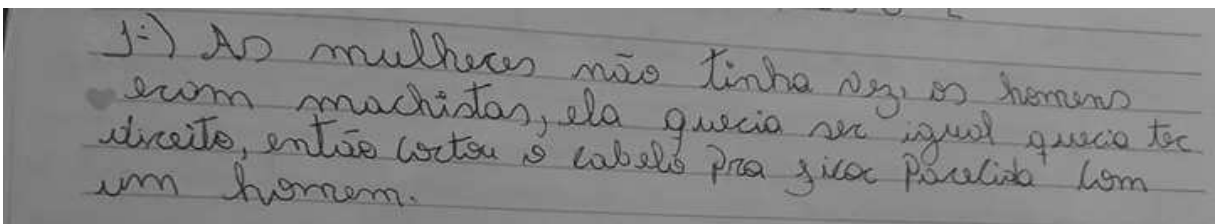 1-) As mulheres não tinha vez, os homens
eram machistas, ela queria ser igual queria ter
direito, então cortou o cabelo pra ficar parecida com
um homem.